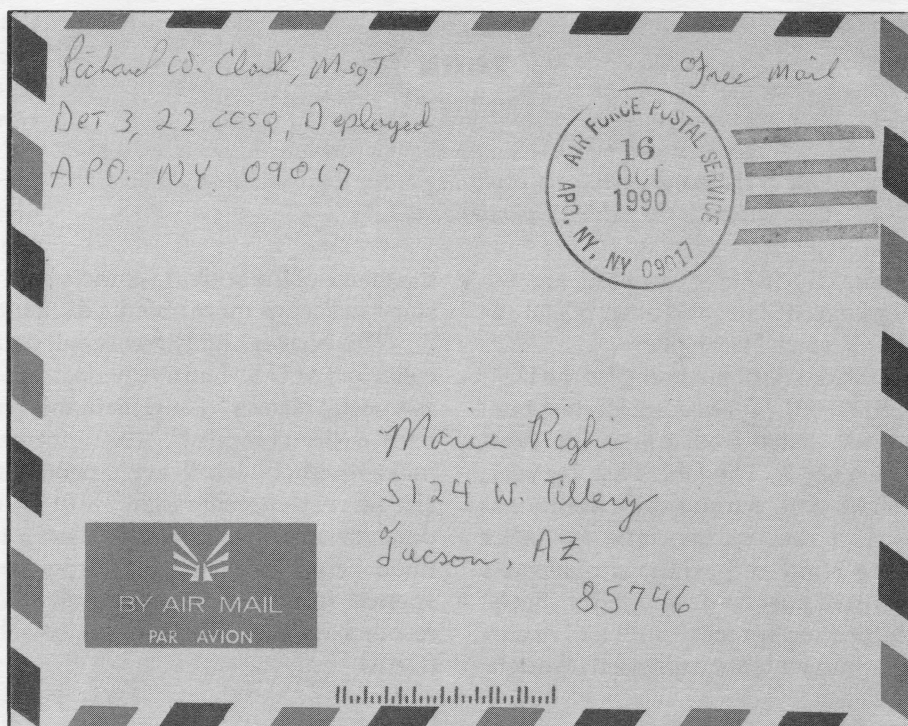 Richard W. Clark, MsgT
Det 3, 22 CCSQ, Deployed
APO. NY. 09017
Free Mail
AIR FORCE POSTAL SERVICE
16
OCT
1990
APO, NY, NY 09017
Maria Righi
5124 W. Tillery
Tucson, AZ
85746
BY AIR MAIL
PAR AVION